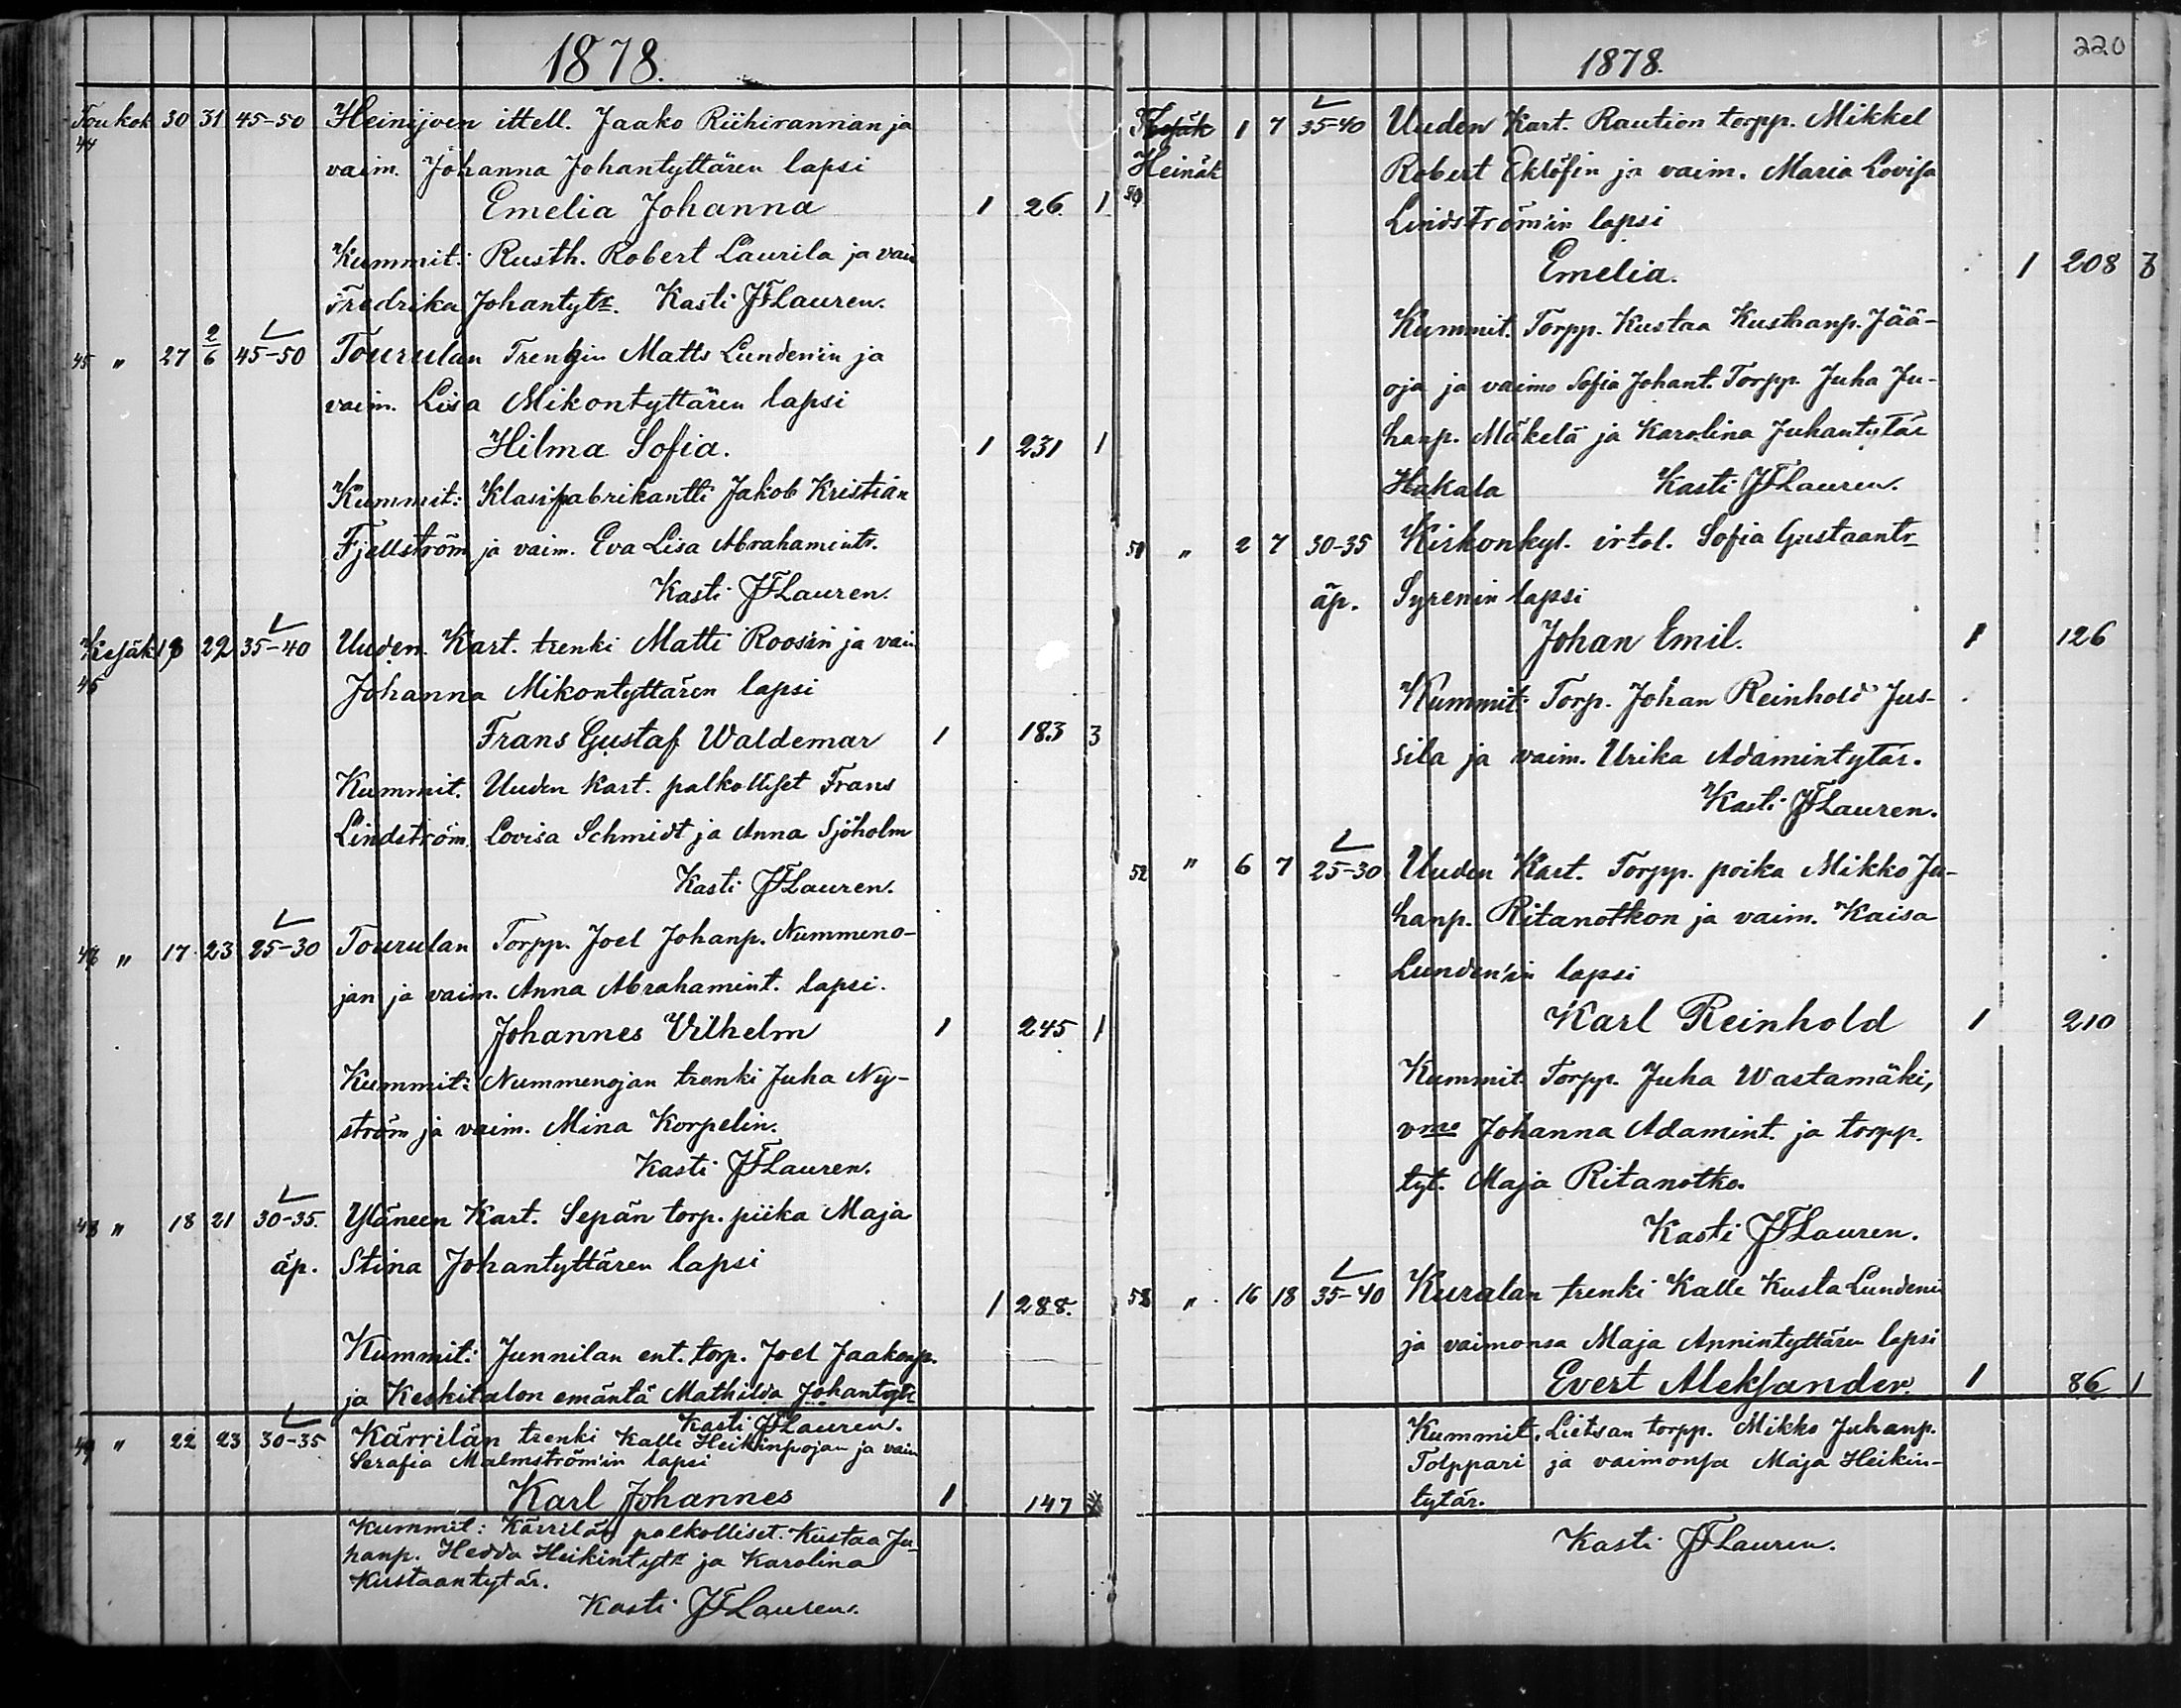 1878.
Toukok 30 31 45-50 Heinijoen ittell. Jaako Riihirannan ja
44 vaim. Johanna Johantyttären lapsi
Emelia Johanna 1 26. 1
Kummit: Rusth. Robert Laurila ja vai
Fredrika Johantytr. Kasti JFLauren.
45 " 27 2/6 45-50 Tourulan Trengin Matts Lunden'in ja
vaim. Lisa Mikontyttären lapsi
Hilma Sofia. 1 231 1
Kummit: Klasifabrikantti Jakob Kristian
Fjellström ja vaim. Eva Lisa Abrahamintr.
Kasti JFLauren.
Kesäk 22 35-40 Uuden Kart. trenki Matti Roosin ja vai
Johanna Mikontyttären lapsi
Frans Gustaf Waldemar 1 183 3
Kummit. Uuden Kart. palkolliset Frans
Lindström, Lovisa Schmidt ja Anna Sjöholm
Kasti JFLauren.
" 17 23 25-30 Tourulan Torpp. Joel Johanp. Nummeno-
jan ja vaim. Anna Abrahamint. lapsi.
Johannes Vilhelm 1 245 1
Kummit: Nummenojan trenki Juha Ny-
ström ja vaim. Mina Korpelin.
Kasti JFLauren.
48 " 18 21 30-35. Yläneen Kart. Sepän torp. piika Maja
äp. Stina Johantyttären lapsi
1 288.
Kummit: Junnilan ent. torp. Joel Jaakonp.
ja Keskitalon emäntä Mathilda Johantytr
Kasti JFLauren.
49 " 22 23 30-35 Kärrilän trenki Kalle Heikinpojan ja vaim
Serafia Malmström'in lapsi
Karl Johannes 1 147
Kummit: Kärrilän palkolliset. Kustaa Ju-
hanp. Hedda Heikintytr ja Karolina
Kustaantytär.
Kasti JFLauren.
220
1878.
Kesäk 1 7 35-40 Uuden Kart. Raution torpp. Mikkel
Heinäk Robert Eklöfin ja vaim. Maria Lovisa
Lindström'in lapsi
Emelia. 1 208
Kummit. Torpp. Kustaa Kustaanp. Jää-
oja ja vaimo Sofia Johant. Torpp. Juha Ju-
hanp. Mäkelä ja Karolina Juhantytär
Hakala Kasti JFLauren.
" 2 7 30-35 Kirkonkyl. irtol. Sofia Gustaantr
äp. Syrenin lapsi
Johan Emil. 1 126
Kummit: Torp. Johan Reinhold Jus-
sila ja vaim. Ulrika Adamintytär.
Kasti JFLauren.
52 " 6 7 25-30 Uuden Kart. Torpp. poika Mikko Ju-
hanp. Ritanotkon ja vaim. Kaisa
Lunden'in lapsi
Karl Reinhold 1 210
Kummit. Torpp. Juha Wastamäki,
vmo Johanna Adamint. ja torpp.
tyt. Maja Ritanotko.
Kasti JFLauren.
53 " 16 18 35-40 Kuralan trenki Kalle Kusta Lundeni
ja vaimonsa Maja Annintyttären lapsi
Evert Aleksander. 1 86 1
Kummit. Lietsan torpp. Mikko Juhanp.
Tolppari ja vaimonsa Maja Heikin-
tytär.
Kasti JFLauren.